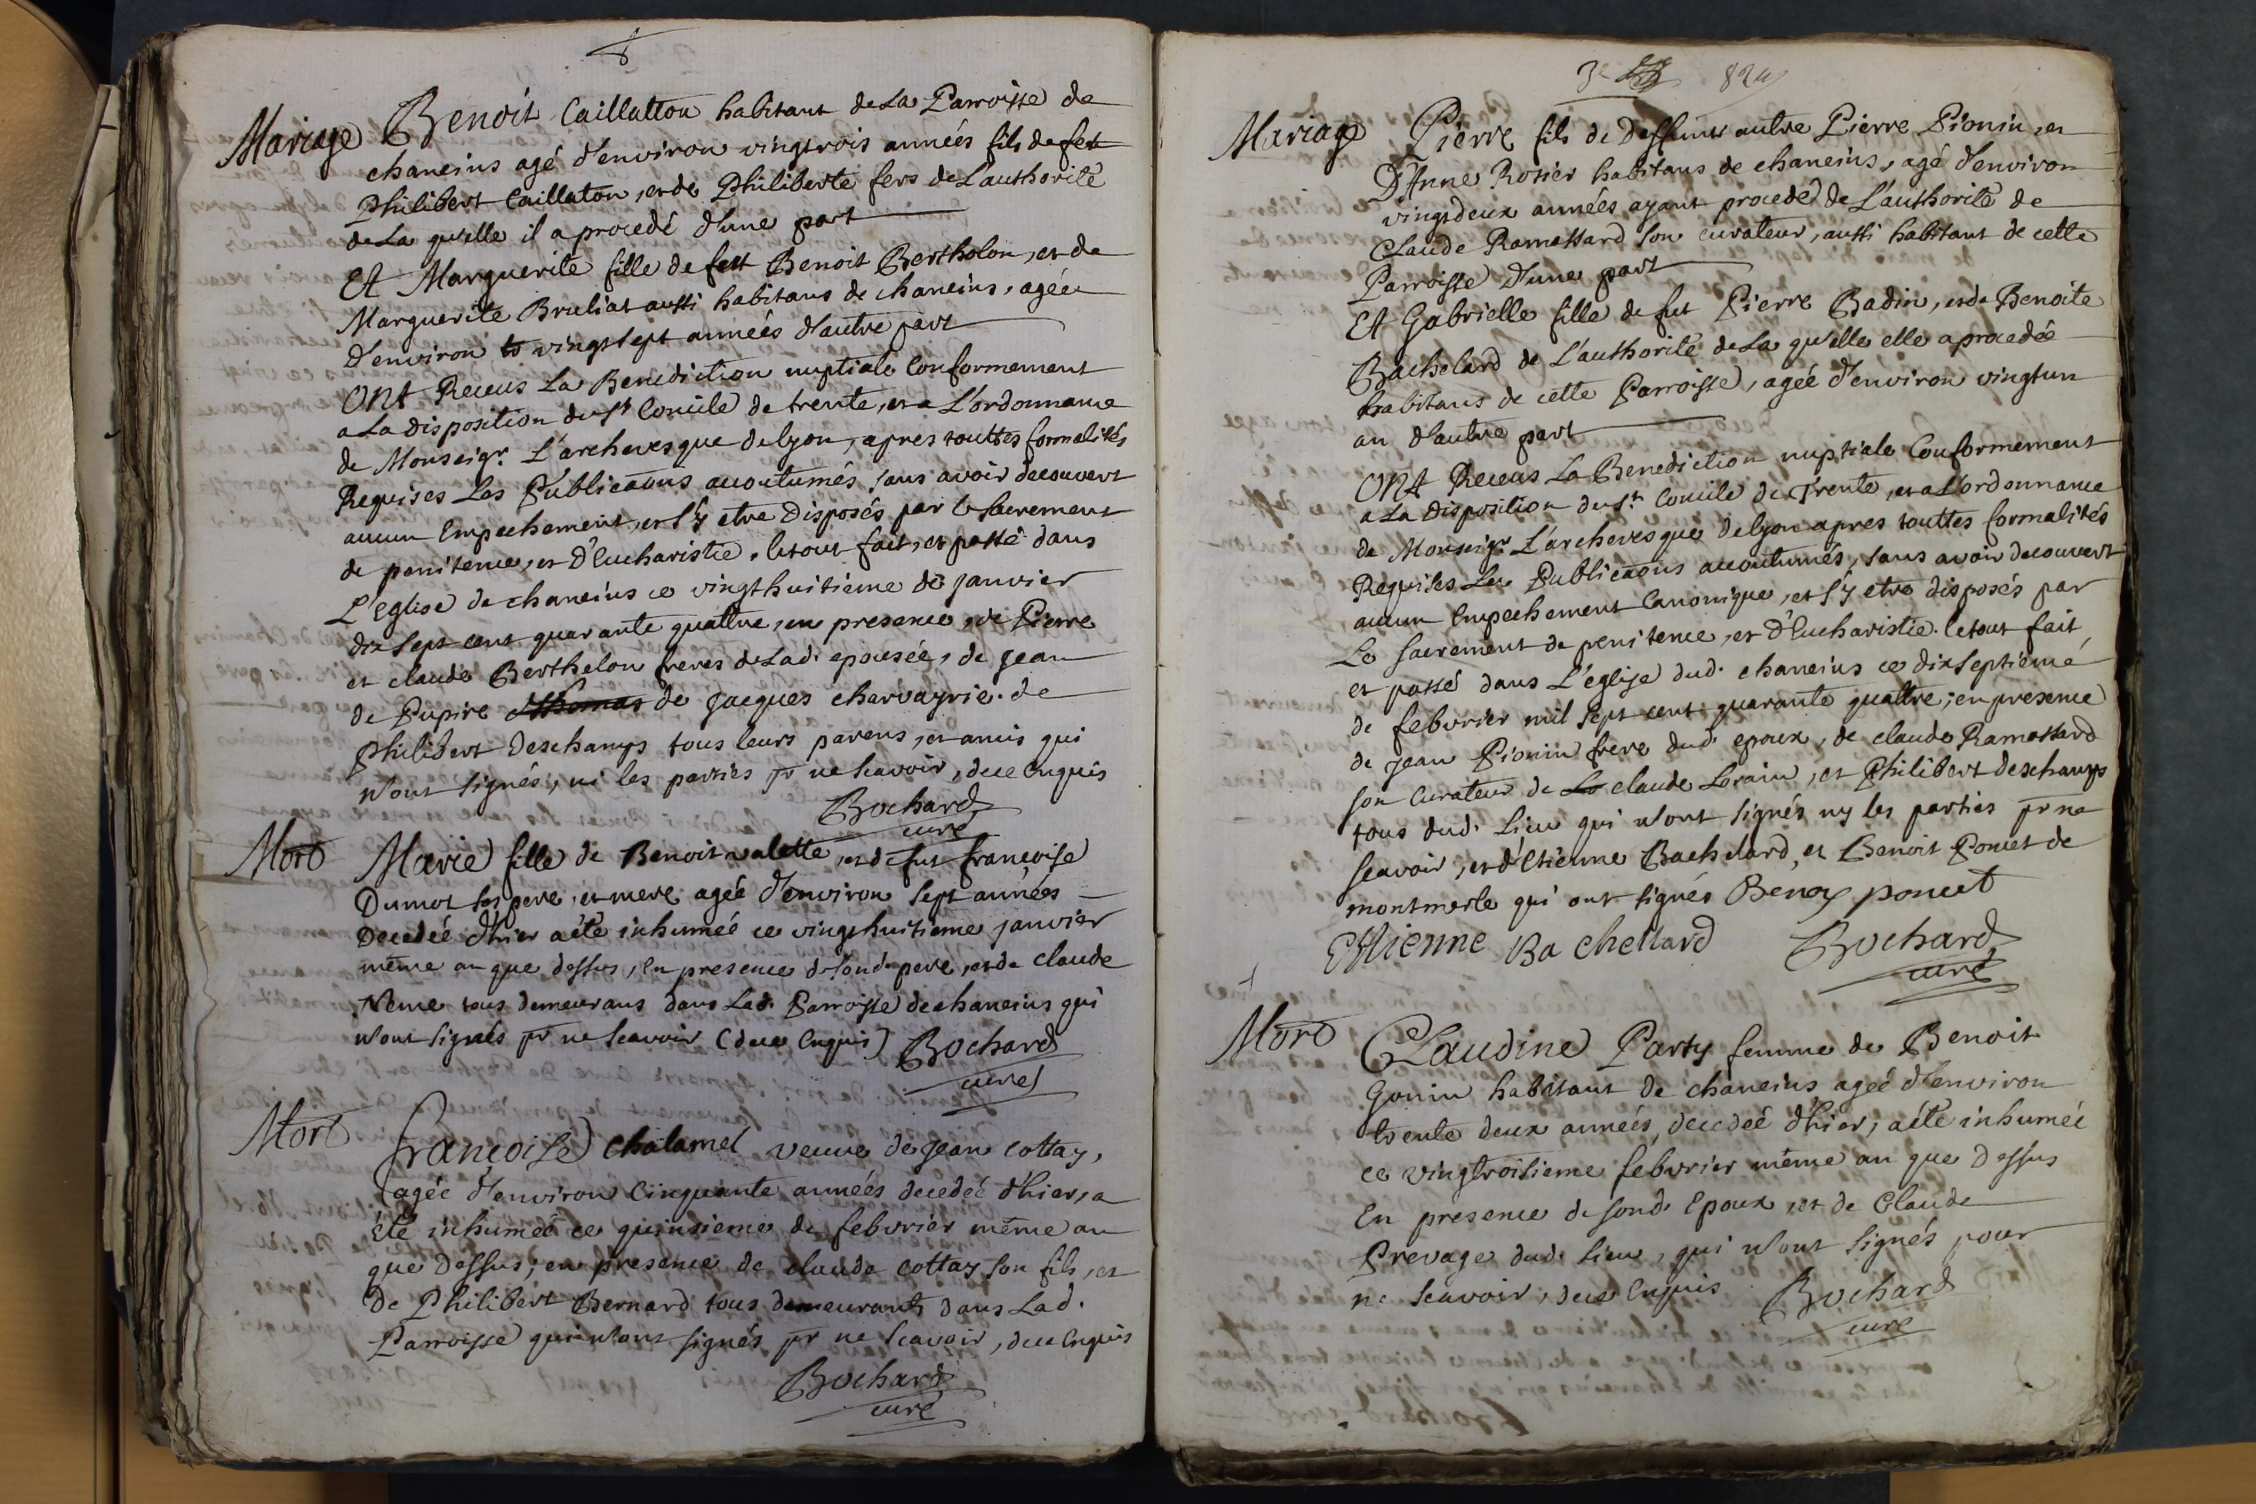 8
Mariage Benoit Caillatton habitant de La Parroisse de
chaneins agé d'environ vingtrois années fils de feu
Philibert Caillaton, et de Philiberte fers de L'authorité
de La quelle il a procedé d'une part
Et Marguerite fille de feu Benoit Bertholon, et de
Marguerite Bruliat aussi habitans de chaneins, agée
d'environ vingtsept années d'autre part
ONt Receus La Benediction nuptiale Conformement
a La disposition du St Concile de trente, et a L'ordonnance
de Monseigr. L'archevesque de lyon, apres touttes formalités
Requises Les Publicaōns acoutumés, sans avoir decouvert
aucun Empechement, et s'y etre disposés par le sacrement
de penitence, et d'Eucharistie, le tout fait, et passé dans
L'Eglise de chaneins ce vingthuitieme de janvier
dix sept cent quarante quattre, en presence, de Pierre
et claude Berthelon freres de Lad. epousée, de jean
de Pupire de jacques charvayrie. de
Philibert deschamps tous leurs parens, et amis qui
n'ont signés, ni les parties pr ne scavoir, deue Enquis
Bochard
curé
Mort Marie fille de Benoit valette, et de fut francoise
Dumot ses pere, et mere agée d'environ sept années
Decedée d'hier a été inhumée ce vingthuitieme janvier
même an que dessus, En presence de sond. pere, et de claude
Neme tous demeurans dans Lad. Parroisse de chaneins qui
n'ont signés pr ne scavoir (deue Enquis) Bochard
curé
Mort francoise Chalamel veuve de jean cottay,
agée d'environ Cinquante années decedée d'hier, a
été inhumée ce quinsieme de febvrier même an
que dessus; en presence de claude cottay son fils, et
de Philibert Bernard tous demeurants dans Lad.
Parroisse qui n'ont signés pr ne scavoir, deue Enquis
Bochard
curé
3e 824
Mariage Pierre fils de Deffunt autre Pierre Pionin, et
D'Anne Rosier habitans de chaneins, agé d'environ
vingtdeux années ayant procedé de L'authorité de
Claude Ramassard son curateur, aussi habitant de cette
Parroisse d'une part
Et Gabrielle fille de fut Pierre Badin, et de Benoite
Bachelard de L'authorité de La quelle elle a procedée
habitans de cette Parroisse, agée d'environ vingtun
an d'autre part
ONt Receus La Benediction nuptiale Conformement
a La disposition du St. Concile de Trente, et a L'ordonnance
de Monseigr L'archevesque de lyon apres touttes formalités
Requises Les Publicaōns acoutumés, sans avoir decouvert
aucun Empechement Canonique, et s'y etre disposés par
Le sacrement de penitence, et d'Eucharistie. le tout fait
et passé dans L'église dud. chaneins ce dixseptieme
de febvrier mil sept cent quarante quattre; en presence
de jean Pionin frere dud. epoux, de claude Ramassard
son Curateur de claude Lorain, et Philibert deschamps
tous dud. Lieu qui n'ont signés ny les parties pr ne
scavoir, et d'Etienne Bachelard, et Benoit Poncet de
montmerle qui ont signés Benoy poncet
Ettienne Ba chellard Bochard
curé
Mort Claudine Party femme de Benoit
Gonin habitant de chaneins agée d'environ
trente deux années, decedée d'hier, a été inhumée
ce vingtroisieme febvrier même an que dessus
En presence de sond. Epoux, et de Claude
Prevage dud. Lieu, qui n'ont signés pour
ne scavoir, deue Enquis Bochard
curé